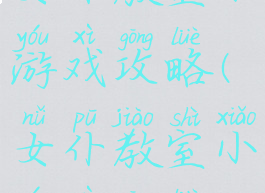 yóu xì gōng lüè
游戏攻略(
nǚ pū jiào shì xiǎo
女仆教室小